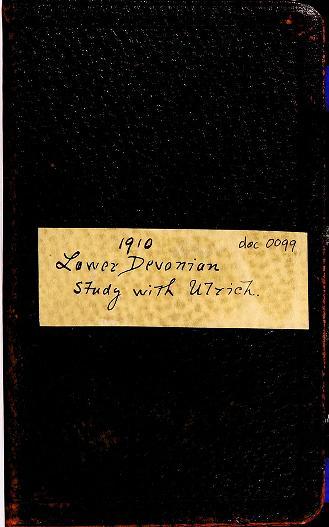 1910 doc 0099
Lower Devonian
Study with Ulrich.